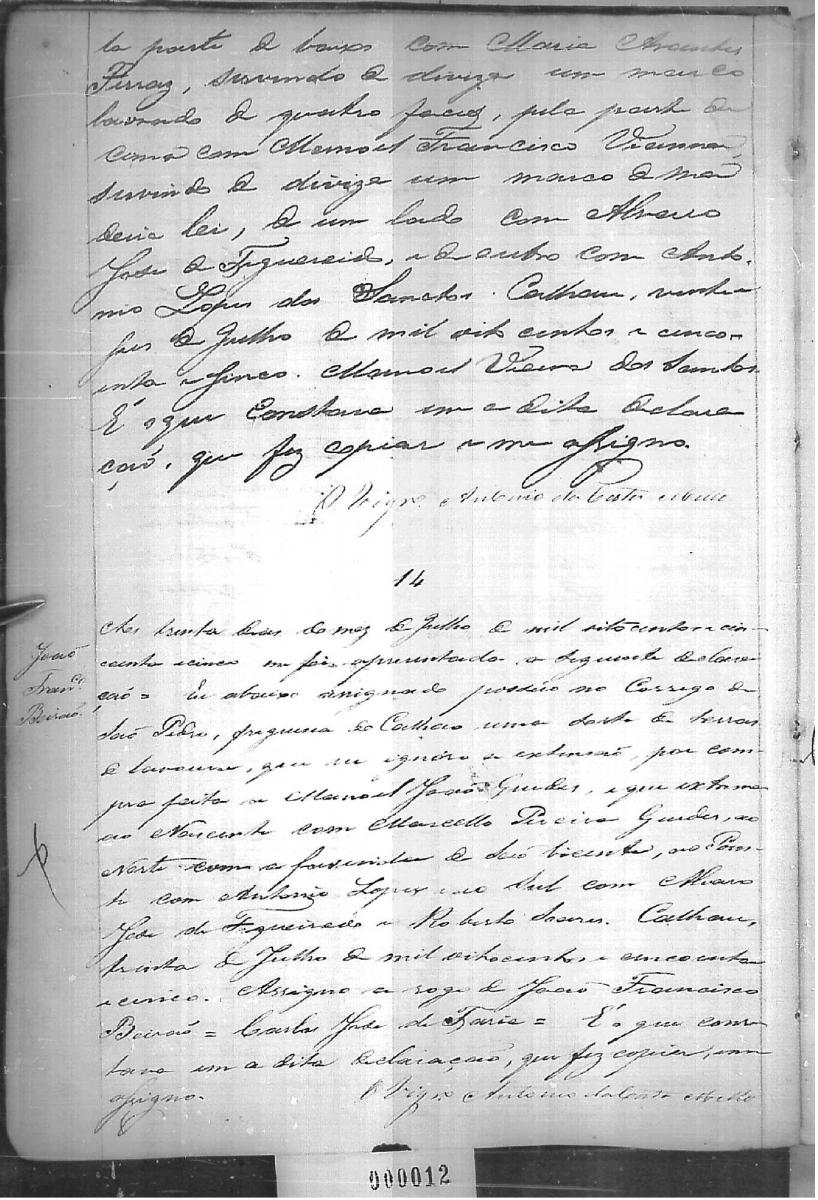 la parte de baixo com Maria Arantes
Ferraz, servindo de divize um marco
lavrado de quatro faces, pela parte de
cima com Manoel Francisco Vianna,
servindo de divize um marco de ma
deira lei, de um lado com Alvaro
José de Figuereido, e de outro com Anto-
nio Lopes dos Sanctos. Calhau, vinte e
seis de Julho de mil oito centos e cinco-
enta e sinco. Manoel Vieira dos Santos
É o que constava em a dita declara
ção, que fiz copiar e me assigno.
O Vigro. Antonio da Costa Mello
14
João
Franco.
Beirão
Aos trinta dias do mez de Julho de mil oitocentos e cin-
coenta e cinco me foi apresentada a seguinte declara
ção = Eu abaixo assignado possúo no Corrego de
São Pedro, freguesia do Calhao uma sorte de terras
de lavoura, que se ignora a extensão, por com-
pra feita a Manoel João Guedes, e que extrema
ao Nascente com Marcello Pereira Guedes, ao
Norte com a fasenda de São Vicente, ao Poen-
te com Antonio Lopes e ao Sul com Alvaro
José de Figueiredo e Roberto Soares. Calhau,
trinta de Julho de mil oitocentos e cincoenta
e cinco. Assigno a rogo de João Francisco
Beirão = Carlos José de Faria = É o que cons-
tava em a dita declaração, que fiz copiar, e me
assigno.
O Vigro Antonio da Costa Mello
000012